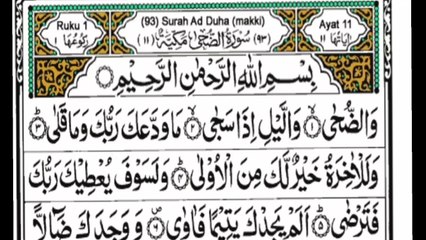 Ruku 1 (93) Surah Ad Duha (makki) Ayat 11
رکوعها (١١) سُوْرَةُ الضُّحٰى مَكِّيَّةٌ (٩٣) اٰيَاتُهَا ١١
بِسْمِ اللّٰهِ الرَّحْمٰنِ الرَّحِيْمِ
وَالضُّحٰى ۙ۱ وَالَّيْلِ اِذَا سَجٰى ۙ۲ مَا وَدَّعَكَ رَبُّكَ وَمَا قَلٰى ؕ۳
وَلَلْاٰخِرَةُ خَيْرٌ لَّكَ مِنَ الْاُوْلٰى ؕ۴ وَلَسَوْفَ يُعْطِيْكَ رَبُّكَ
فَتَرْضٰى ؕ۵ اَلَمْ يَجِدْكَ يَتِيْمًا فَاٰوٰى ۪۶ وَوَجَدَكَ ضَآلًّا